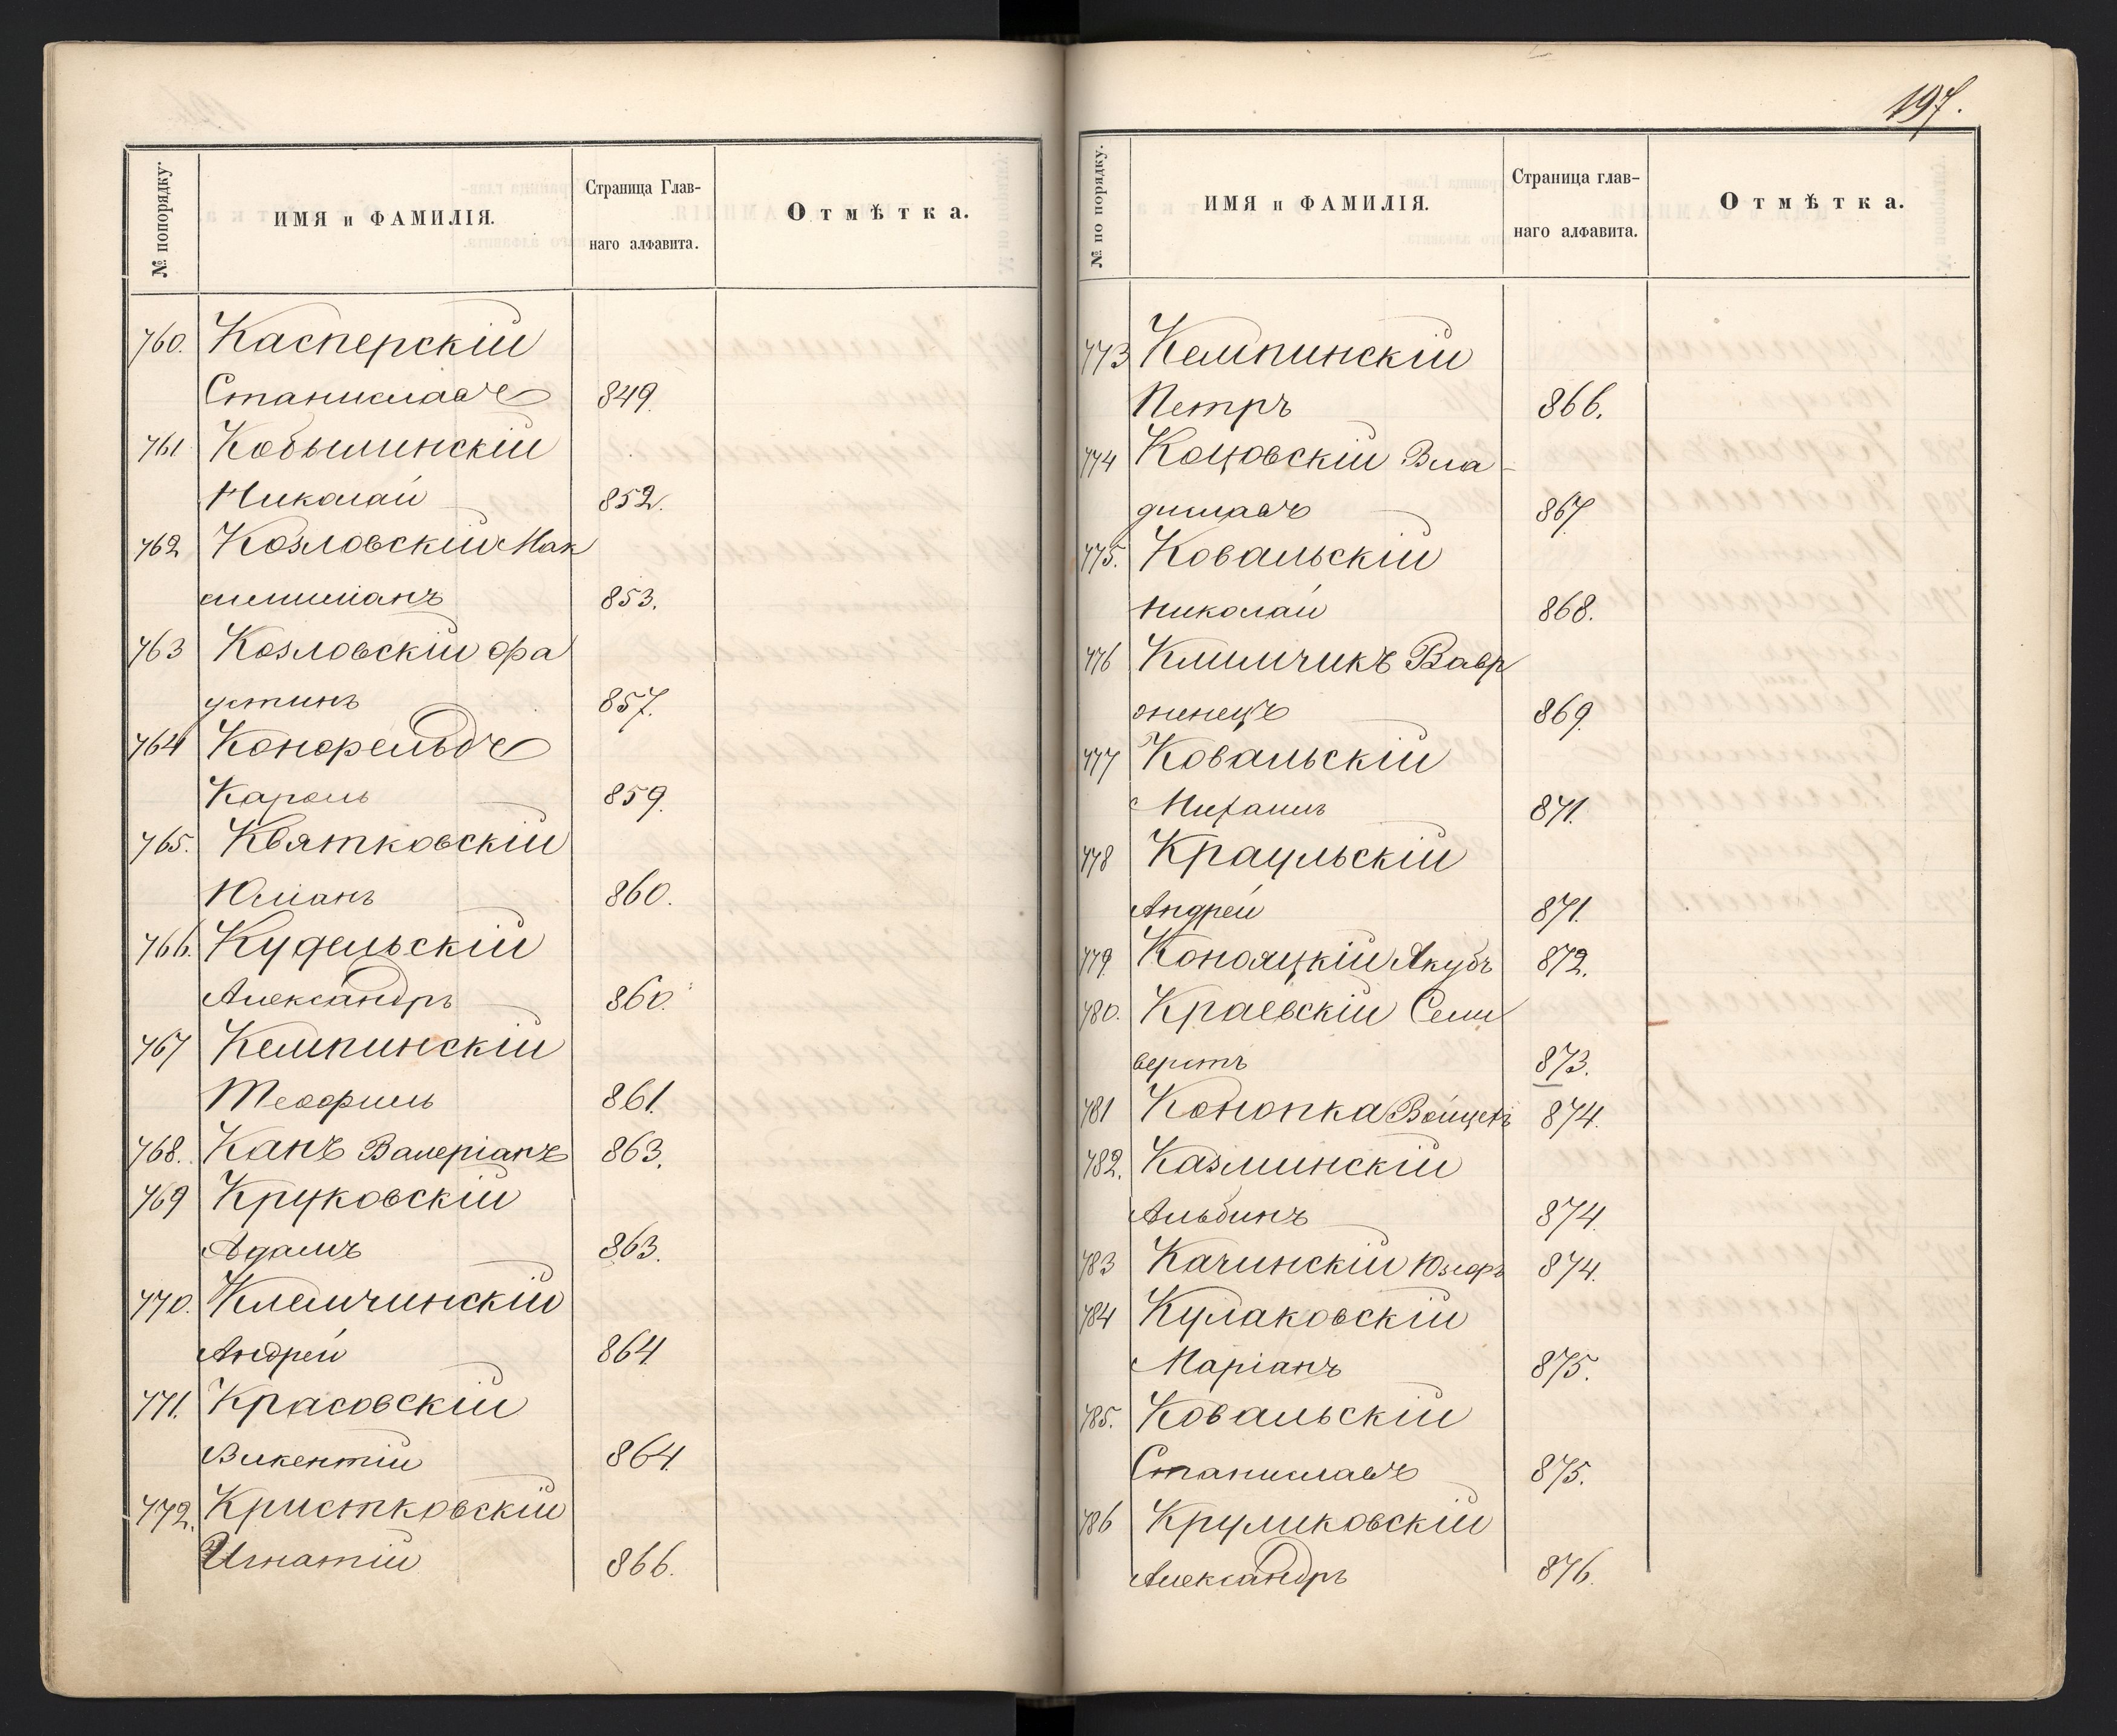 № попорядку.
ИМЯ и ФАМИЛІЯ.
Страница Глав-
наго алфавита.
Отмѣтка.
760. Касперскій
Станиславъ 849.
761 Кобылинскій
Николай 852.
762 Козловскій Мак
симиліанъ 853.
763 Козловскій Фа
устинъ 857.
764 Конфельдъ
Кароль 859.
765. Квятковскій
Юліанъ 860.
766. Кудельскій
Александръ 860.
767 Кемпинскій
Теофиль 861.
768. Канъ Валеріанъ 863.
769 Круковскій
Адамъ 863.
770. Клемчинскій
Андрей 864
771. Красовскій
Викентій 864.
772. Кристковскій
Игнатій 866.
197.
№ по порядку.
ИМЯ и ФАМИЛІЯ.
Страница глав-
наго алфавита.
Отмѣтка.
773 Кемпинскій
Петръ 866.
774 Коцовскій Вла-
диславъ 867.
775. Ковальскій
Николай 868.
776 Климчикъ Вавр
оненецъ 869.
777 Ковальскій
Михаилъ 871.
778 Краульскій
Андрей 871.
779 Конояцкій Якубъ 872.
780. Краевскій Семи
верстъ 873.
781 Конопка Войцехъ 874.
782. Казминскій
Альбинъ 874.
783 Качинскій Юзефъ 874.
784 Кулаковскій
Маріанъ 875.
785. Ковальскій
Станиславъ 875.
786 Круликовскій
Александръ 876.